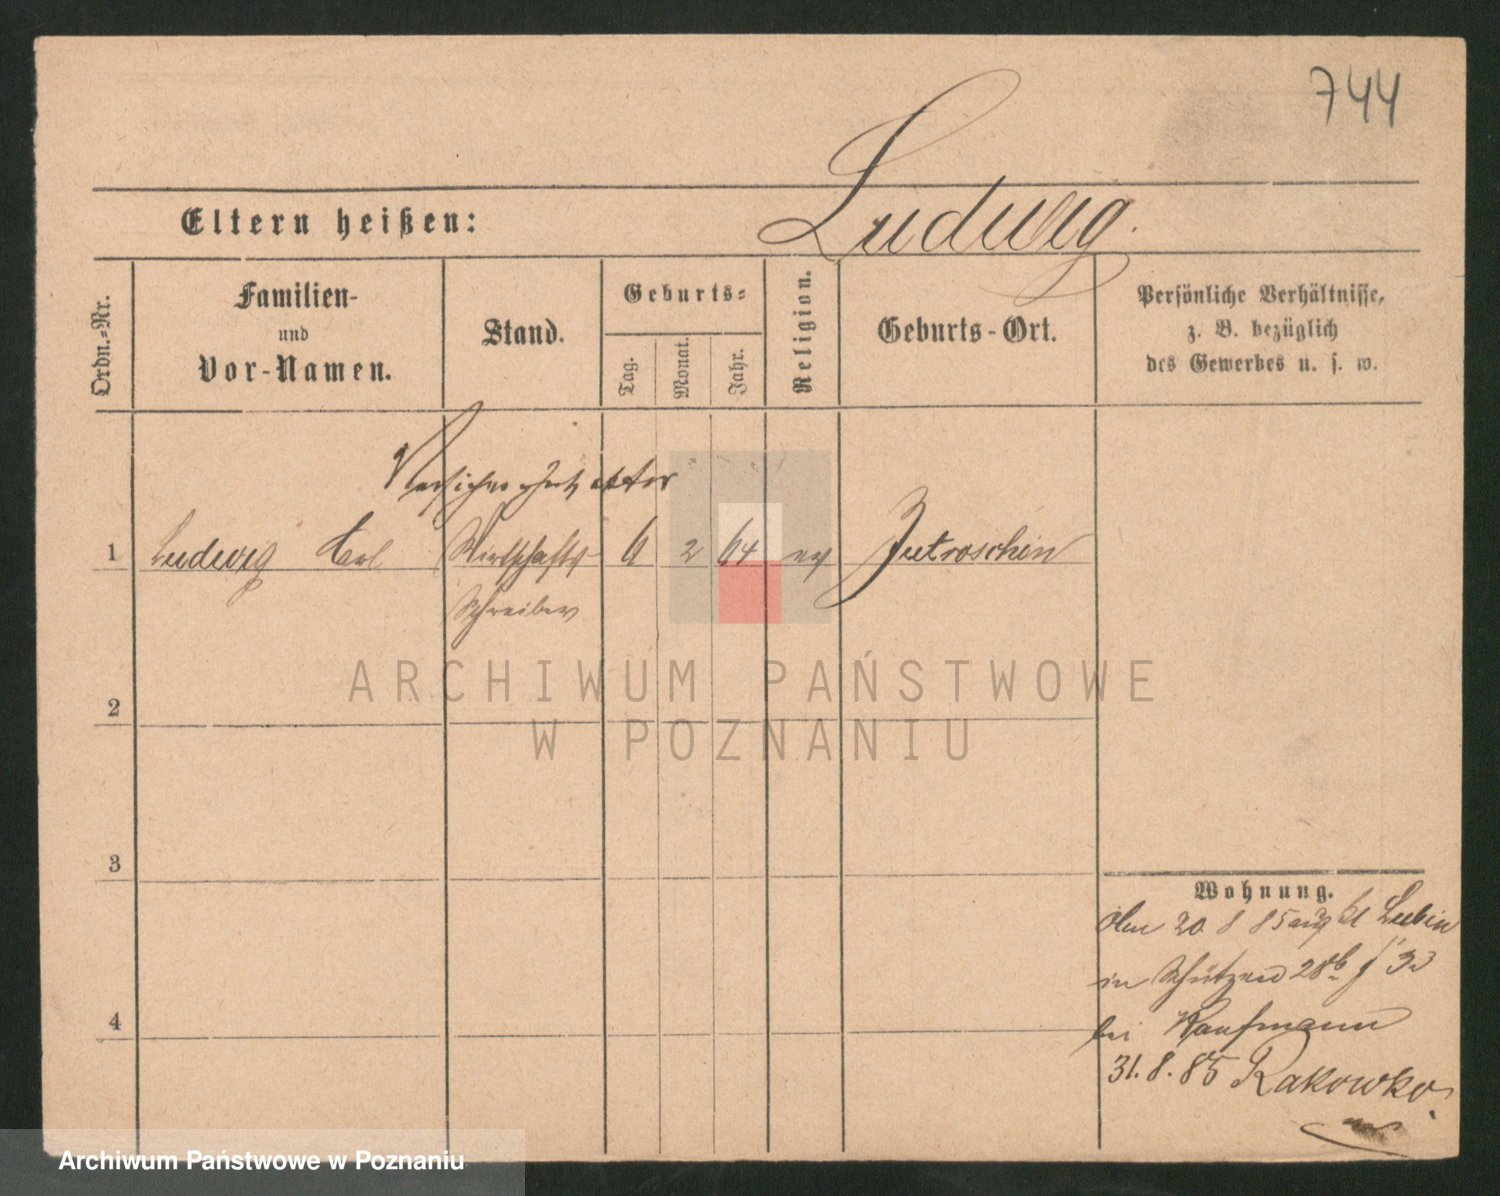 744
Eltern heißen: Ludwig.
Ordn.-Nr.
Familien-
und
Vor-Namen.
Stand.
Geburts-
Tag.
Monat.
Jahr.
Religion.
Geburts-Ort.
Persönliche Verhältnisse,
z. B. bezüglich
des Gewerbes u. s. w.
1 Ludwig Carl Wirtschafts- 6 2 64 ev Jutroschin
Schreiber
2
3
4
Wohnung.
den 20 8 85 aus Lubin
in Schützen 28b
bei Kaufmann
31.8.85 Rakowko
ARCHIWUM PAŃSTWOWE
W POZNANIU
Archiwum Państwowe w Poznaniu